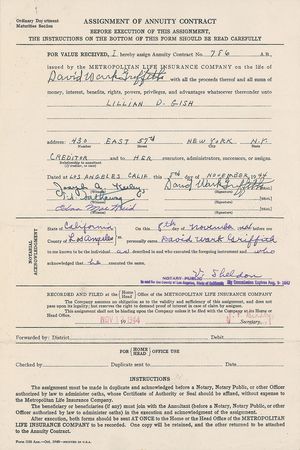 Ordinary Department
Maturities Section
ASSIGNMENT OF ANNUITY CONTRACT
BEFORE EXECUTION OF THIS ASSIGNMENT,
THE INSTRUCTIONS ON THE BOTTOM OF THIS FORM SHOULD BE READ CAREFULLY
FOR VALUE RECEIVED, I hereby assign Annuity Contract No. 786 A B,
issued by the METROPOLITAN LIFE INSURANCE COMPANY on the life of
David Wark Griffith, with all the proceeds thereof and all sums of
money, interest, benefits, rights, powers, privileges, and advantages whatsoever thereunder unto
LILLIAN D. GISH
address: 430 EAST 57th NEW YORK N.Y.
Number Street City State
CREDITOR and to HER executors, administrators, successors, or assigns.
Relationship to annuitant
(if creditor or cousin, so state)
Dated at LOS ANGELES CALIF. this 8th day of NOVEMBER, 1944
David Wark Griffith
(Signature)
(Signature)
(Signature)
NOTARIAL
ACKNOWLEDGMENT
State of California
County of Los Angeles
On this 8th day of November 1944 before me
personally came David Wark Griffith
to me known to be the individual and described in and who executed the foregoing instrument and who
acknowledged that he executed the same.
V. Sheldon
NOTARY PUBLIC
In and for the County of Los Angeles, State of California
My Commission Expires Aug. 9, 1947
RECORDED AND FILED at the Home Head Office of the METROPOLITAN LIFE INSURANCE COMPANY
The Company assumes no obligation as to the validity or sufficiency of this assignment, and does not
pass upon its legality; but reserves the right to demand proof of interest in case of claim by assignee.
This assignment shall not be binding upon the Company unless it has been filed with the Company at its Home or
Head Office.
1944
Secretary.
Forwarded by: District Debit
FOR HOME HEAD OFFICE USE
Checked by Duplicate sent to Date
INSTRUCTIONS
The assignment must be made in duplicate and acknowledged before a Notary, Notary Public, or other Officer
authorized by law to administer oaths, whose Certificate of Authority or Seal should be affixed, without expense to
the Metropolitan Life Insurance Company.
The beneficiary or beneficiaries (if any) must join with the Annuitant (before a Notary, Notary Public, or other
Officer authorized by law to administer oaths) in the execution and acknowledgment of the assignment.
After execution, both forms should be sent AT ONCE to the Home or the Head Office of the METROPOLITAN
LIFE INSURANCE COMPANY to be recorded. One copy will be retained, and the other returned to be attached
to the Annuity Contract.
PRINTED IN U.S.A.